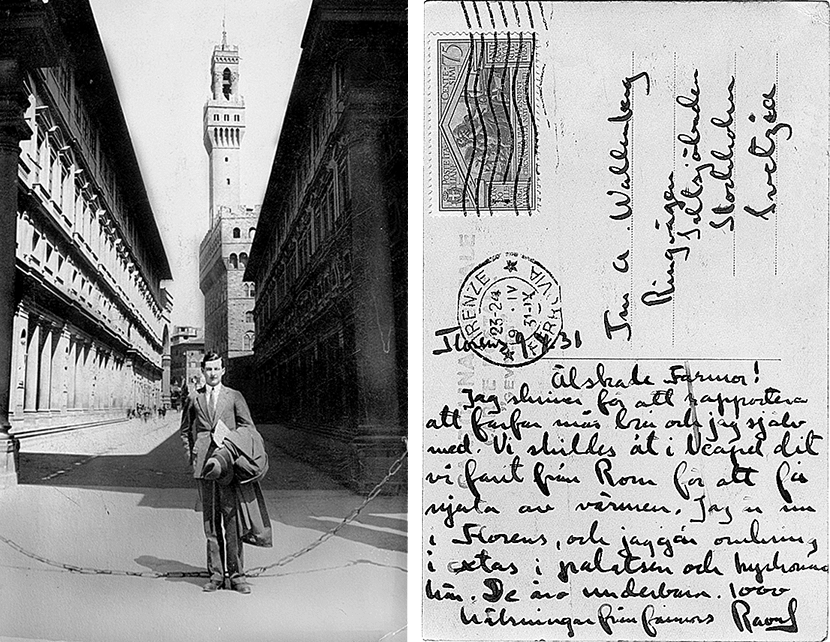 75
FIRENZE FERROVIA
23-24
9 · IV
31-IX
Fru A. Wallenberg
Ringvägen
Saltsjöbaden
Stockholm
Svetzia
Florens 9 31
Älskade Farmor!
Jag skriver för att rapportera
att farfar mår bra och jag själv
med. Vi skildes åt i Neapel dit
vi farit från Rom för att få
njuta av värmen. Jag är nu
i Florens, och jag går omkring
i extas i palatsen och kyrkorna
här. De äro underbara. 1000
hälsningar från farmors Raoul